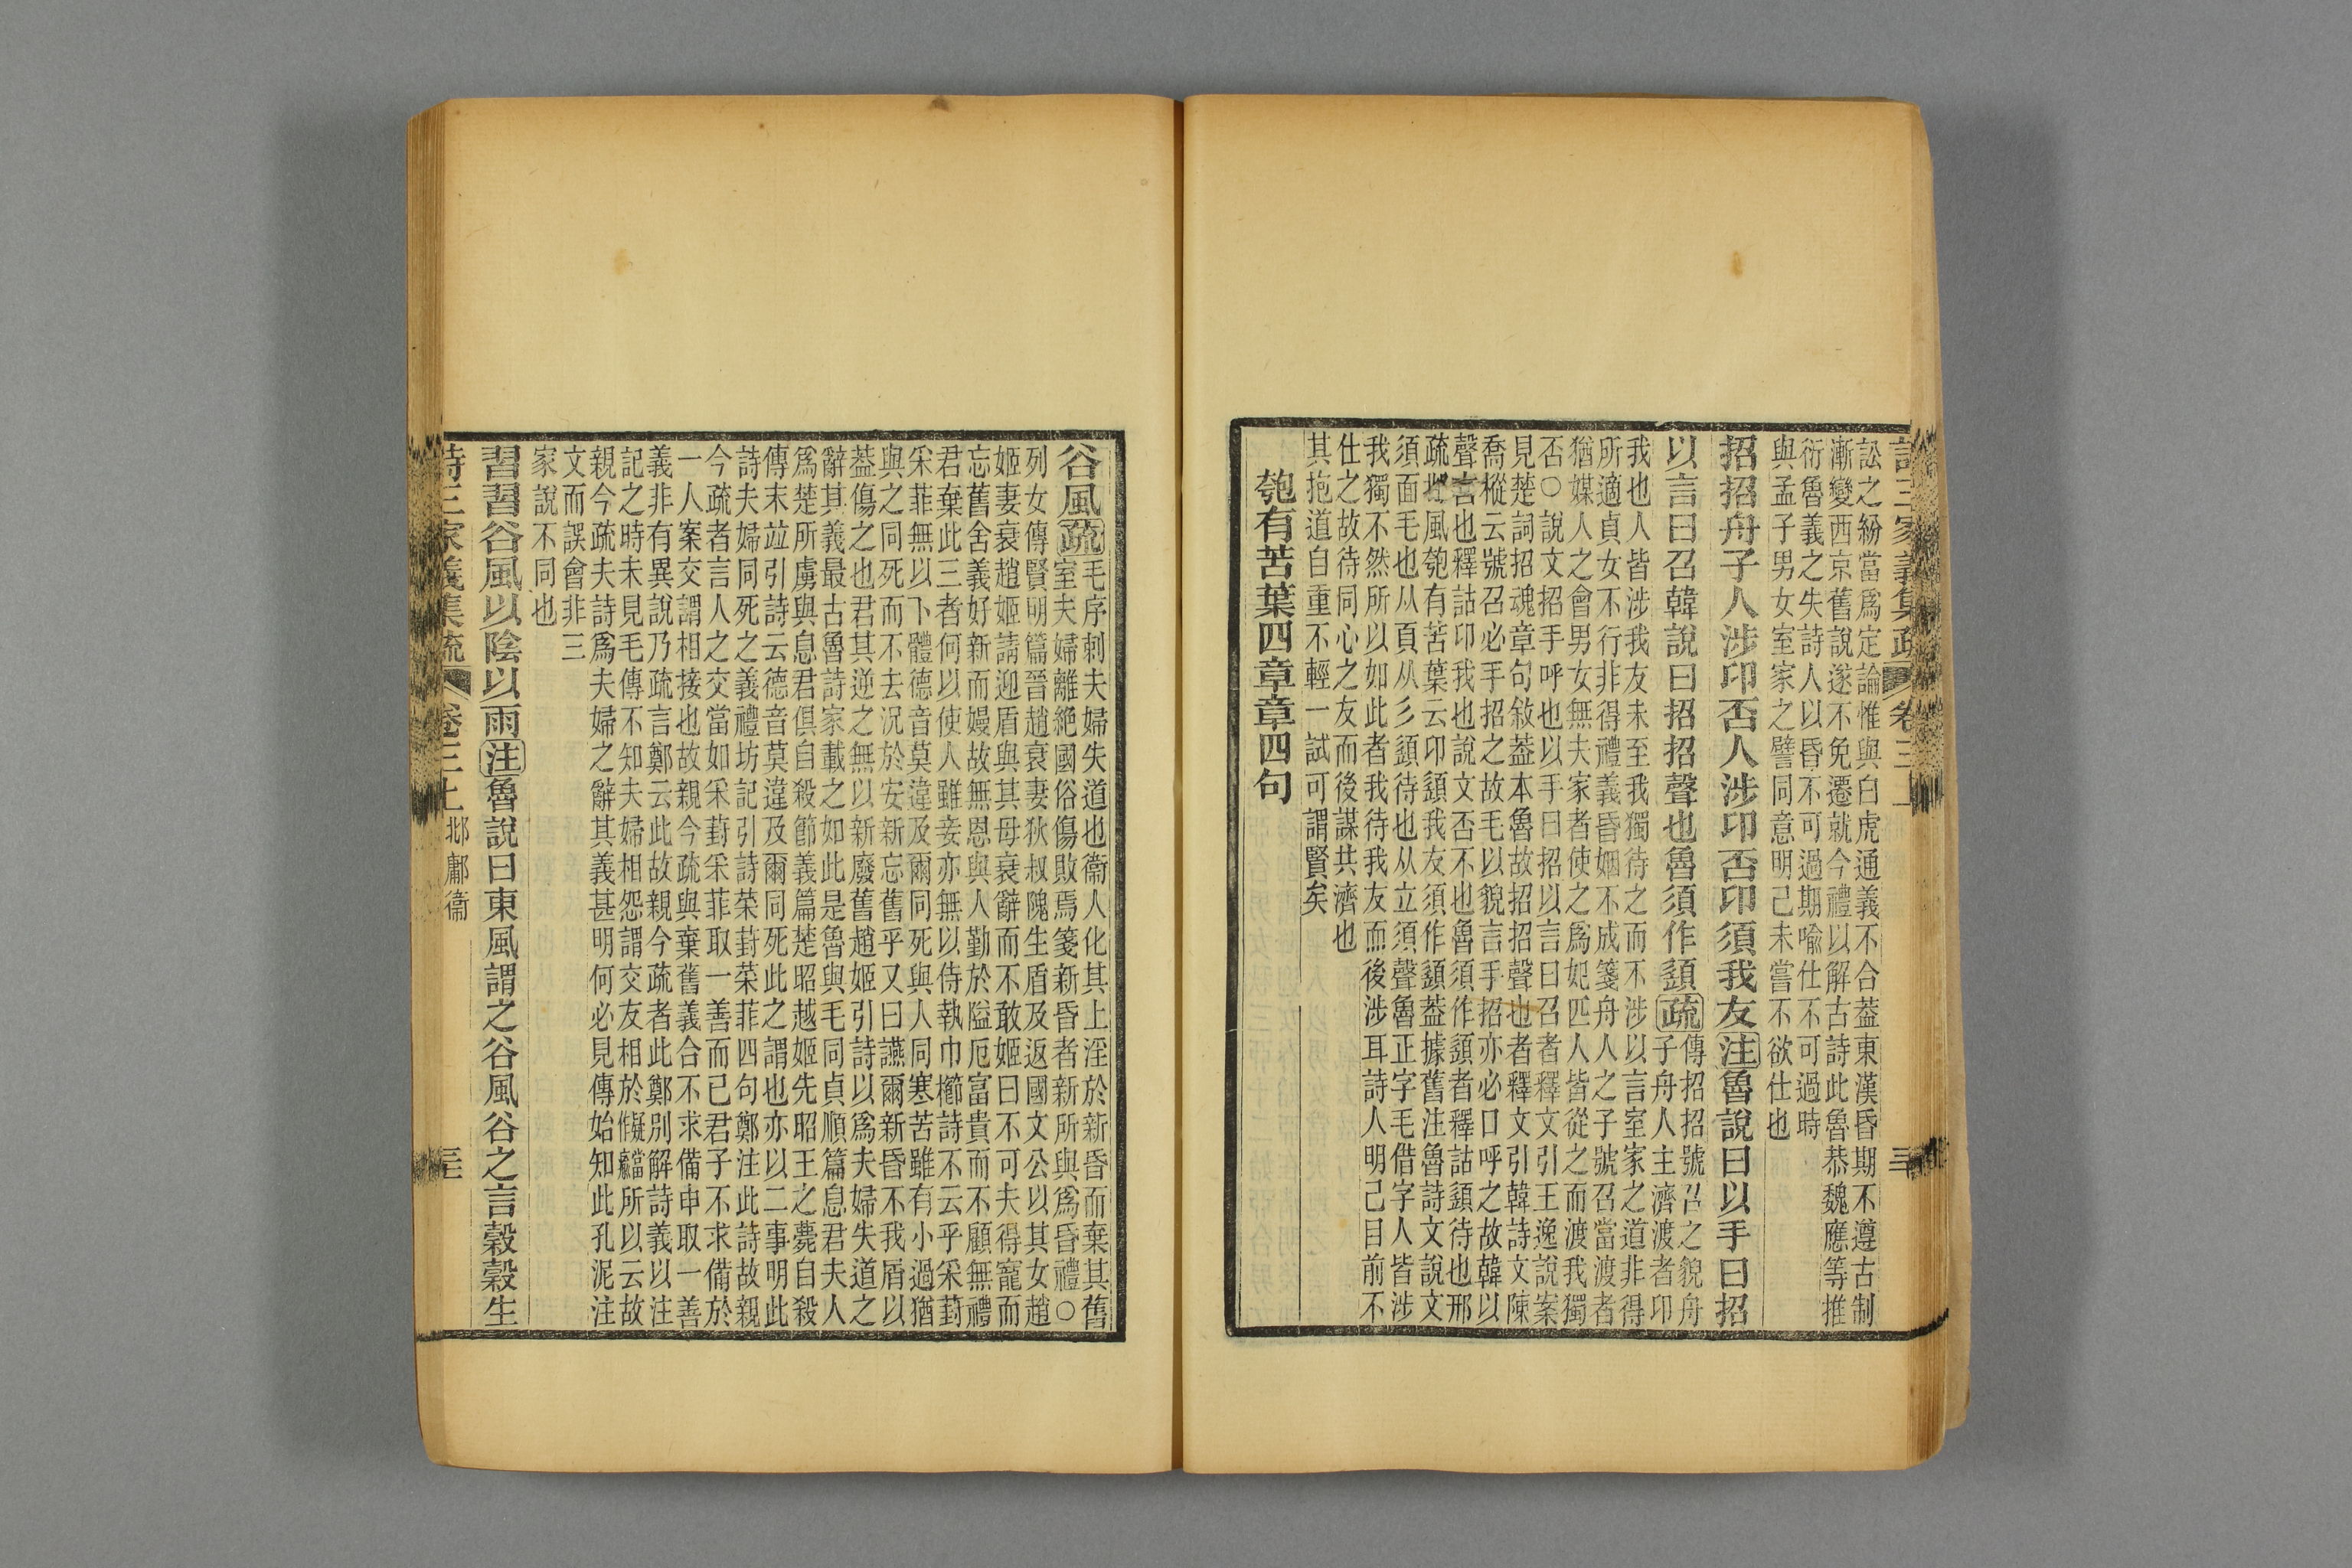 詩三家義集疏 卷三上 三
訟之紛當爲定論惟與白虎通義不合葢東漢昏期不遵古制
漸變西京舊說遂不免遷就今禮以解古詩此魯恭魏應等推
衍魯義之失詩人以昏不可過期喻仕不可過時
與孟子男女室家之譬同意明己未嘗不欲仕也
招招舟子人涉卬否人涉卬否卬須我友注魯說曰以手曰招
以言曰召韓說曰招招聲也魯須作䇓疏
傳招招號召之貌舟
子舟人主濟渡者卬
我也人皆涉我友未至我獨待之而不涉以言室家之道非得
所適貞女不行非得禮義昏姻不成箋舟人之子號召當渡者
猶媒人之會男女無夫家者使之爲妃匹人皆從之而渡我獨
否○說文招手呼也以手曰招以言曰召者釋文引王逸說案
見楚詞招魂章句敘葢本魯故招招聲也者釋文引韓詩文陳
喬樅云號召必手招之故毛以貌言手招亦必口呼之故韓以
聲言也釋詁卬我也說文否不也魯須作䇓者釋詁䇓待也邢
疏邶風匏有苦葉云卬䇓我友須作䇓葢據舊注魯詩文說文
須面毛也从頁从彡䇓待也从立須聲魯正字毛借字人皆涉
我獨不然所以如此者我待我友而後涉耳詩人明己目前不
仕之故待同心之友而後謀共濟也
其抱道自重不輕一試可謂賢矣
匏有苦葉四章章四句
谷風疏
毛序刺夫婦失道也衞人化其上淫於新昏而棄其舊
室夫婦離絶國俗傷敗焉箋新昏者新所與爲昏禮○
列女傳賢明篇晉趙衰妻狄叔隗生盾及返國文公以其女趙
姬妻衰趙姬請迎盾與其母衰辭而不敢姬曰不可夫得寵而
忘舊舍義好新而嫚故無恩與人勤於隘厄富貴而不顧無禮
君棄此三者何以使人雖妾亦無以侍執巾櫛詩不云乎采葑
采菲無以下體德音莫違及爾同死與人同寒苦雖有小過猶
與之同死而不去況於安新忘舊乎又曰讌爾新昏不我屑以
葢傷之也君其逆之無以新廢舊趙姬引詩以爲夫婦失道之
辭其義最古魯詩家載之如此是魯與毛同貞順篇息君夫人
爲楚所虜與息君俱自殺節義篇楚昭越姬先昭王之薨自殺
傳末竝引詩云德音莫違及爾同死此之謂也亦以二事明此
詩夫婦同死之義禮坊記引詩荣葑荣菲四句鄭注此詩故親
今疏者言人之交當如采葑采菲取一善而已君子不求備於
一人案交謂相接也故親今疏與棄舊義合不求備申取一善
義非有異說乃疏言鄭云此故親今疏者此鄭別解詩義以注
記之時未見毛傳不知夫婦相怨謂交友相於儗當所以云故
親今疏夫詩爲夫婦之辭其義甚明何必見傳始知此孔泥注
文而誤會非三
家說不同也
習習谷風以陰以雨注魯說曰東風謂之谷風谷之言穀穀生
詩三家義集疏 卷三上 邶鄘衞 三